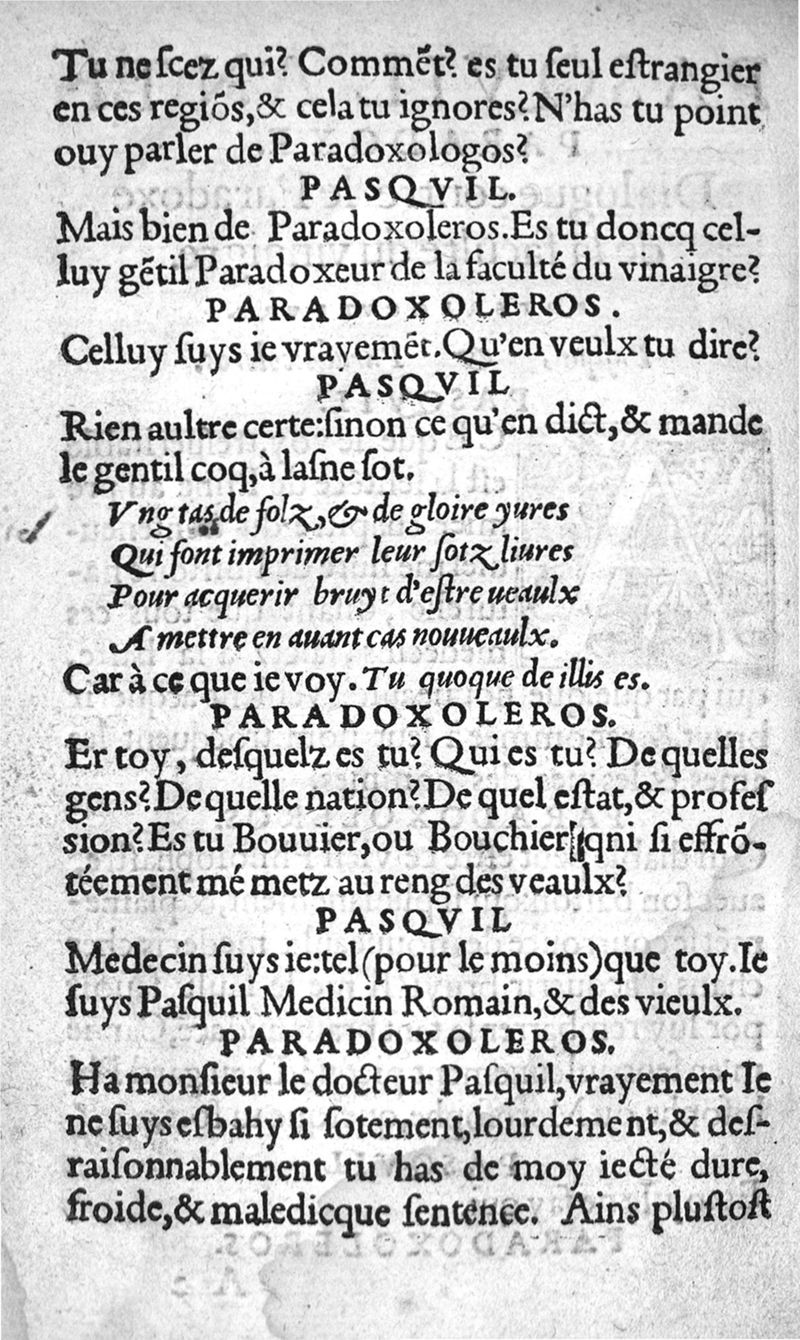 Tu ne ſcez qui? Commẽt? es tu ſeul eſtrangier
en ces regiõs,& cela tu ignores? N'has tu point
ouy parler de Paradoxologos?
PASQVIL.
Mais bien de Paradoxoleros. Es tu doncq cel-
luy gẽtil Paradoxeur de la faculté du vinaigre?
PARADOXOLEROS.
Celluy ſuys ie vrayemẽt. Qu'en veulx tu dire?
PASQVIL
Rien aultre certe:ſinon ce qu'en dict,& mande
le gentil coq,à laſne ſot.
Vng tas de folz,& de gloire yures
Qui font imprimer leur ſotz liures
Pour acquerir bruyt d'eſtre ueaulx
A mettre en auant cas nouueaulx.
Car à ce que ie voy. Tu quoque de illis es.
PARADOXOLEROS.
Er toy, deſquelz es tu? Qui es tu? De quelles
gens? De quelle nation? De quel eſtat,& profeſ
sion? Es tu Bouuier,ou Bouchier qni ſi effrõ-
téement mé metz au reng des veaulx?
PASQVIL
Medecin ſuys ie:tel(pour le moins)que toy. Ie
ſuys Paſquil Medicin Romain,& des vieulx.
PARADOXOLEROS.
Ha monſieur le docteur Paſquil,vrayement Ie
ne ſuys eſbahy ſi ſotement,lourdement,& deſ-
raiſonnablement tu has de moy iecté dure,
froide,& maledicque ſentence. Ains pluſtoſt